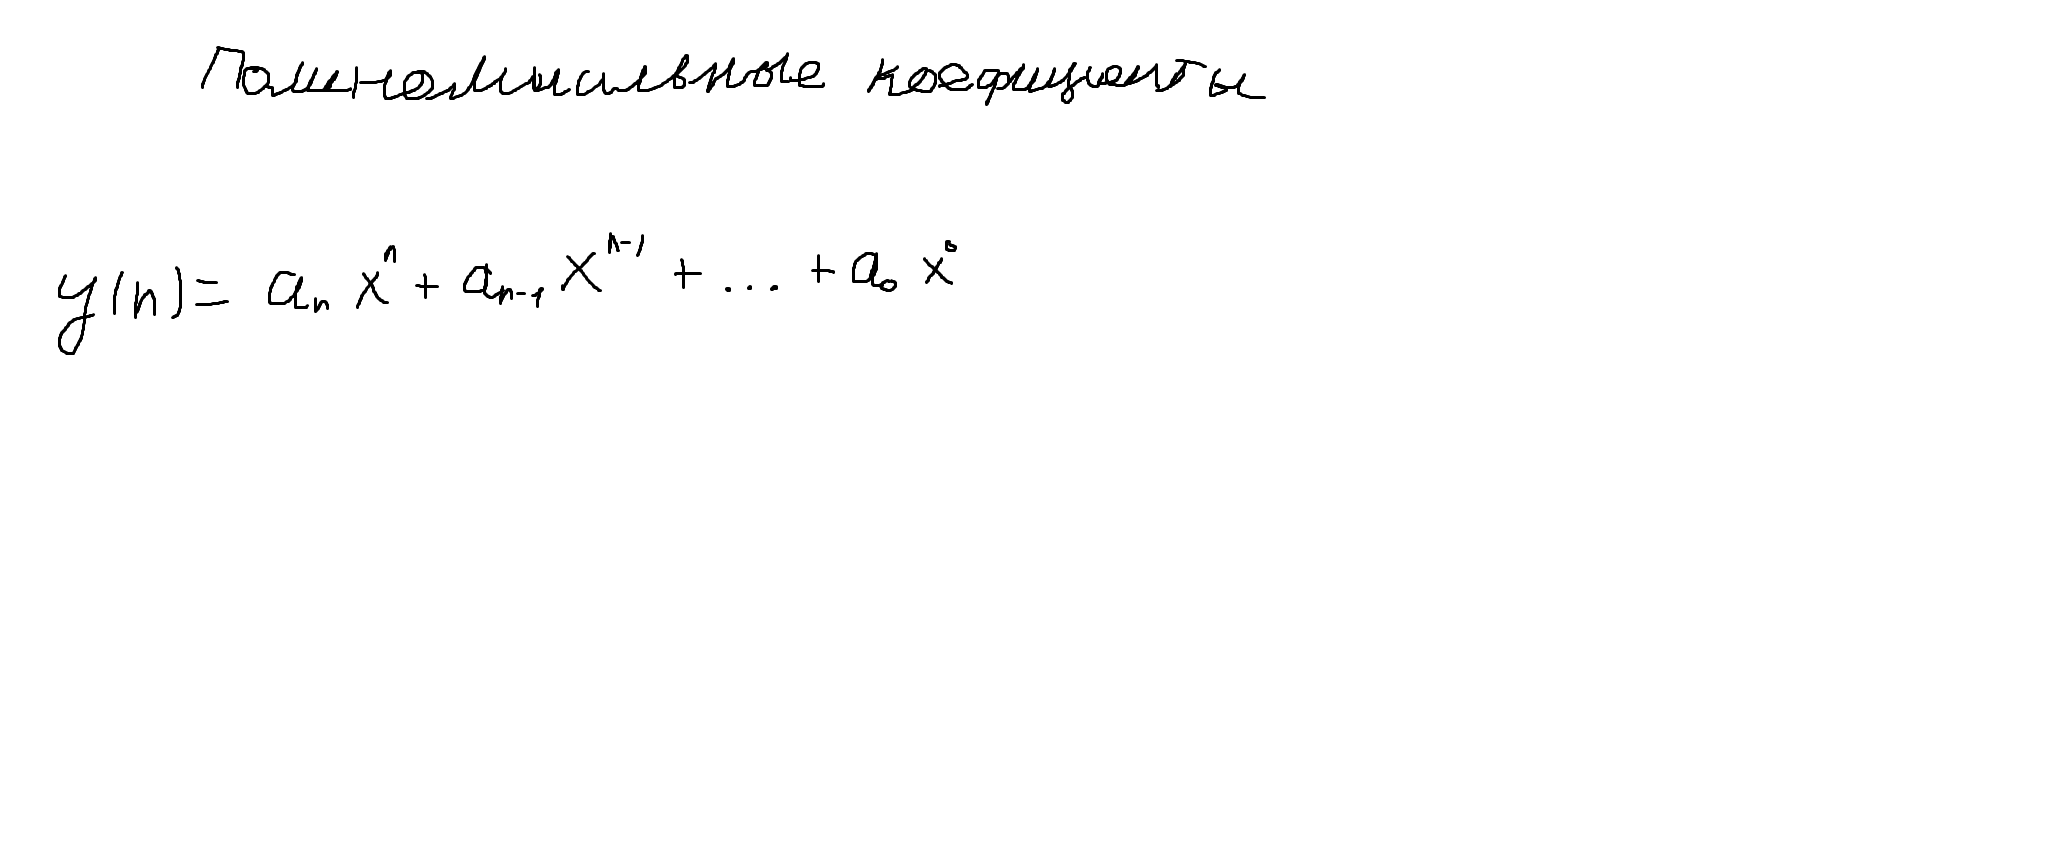 Полиномиальные коефициенты
y(n) = aₙ xⁿ + aₙ₋₁ xⁿ⁻¹ + ... + a₀ x⁰